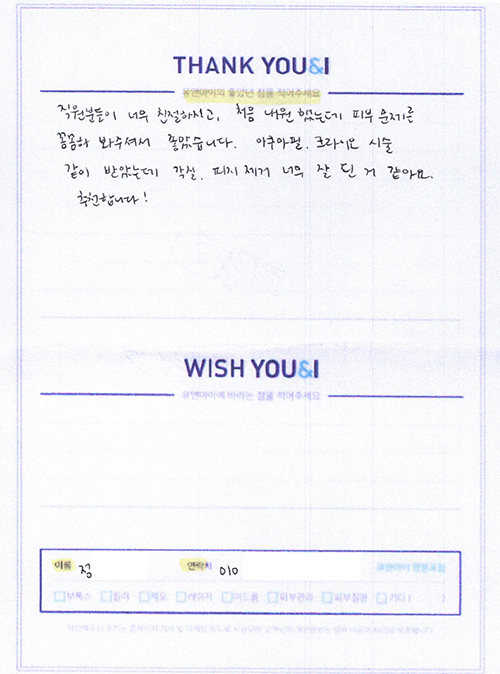 THANK YOU&I
유앤아이의 좋았던 점을 적어주세요
직원분들이 너무 친절하시고, 처음 내원 했는데 피부 문제를
꼼꼼하 봐주셔서 좋았습니다. 아쿠아필, 크라이오 시술
같이 받았는데 각질, 피지 제거 너무 잘 된 거 같아요.
추천합니다!
WISH YOU&I
유앤아이에 바라는 점을 적어주세요
이름 정 연락처 010 유앤아이
보톡스 필러 제모 레이저 여드름 피부관리 피부질환 기타 ( )